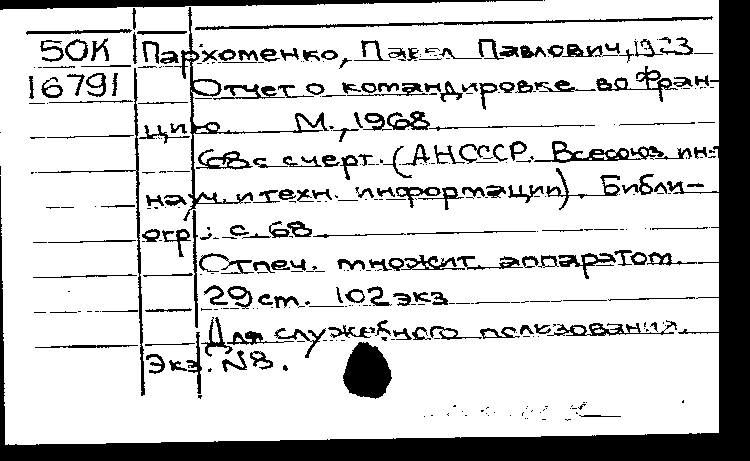 50К Пархоменко, Павел Павлович, 1923
16791 Отчет о командировке во Фран-
цию. М., 1968.
68 с с черт. (АН СССР. Всесоюз. ин-т
науч. и техн. информации). Библи-
огр.: с. 68.
Отпеч. множит. аппаратом.
29 см. 102 экз
Для служебного пользования.
Экз. N8.